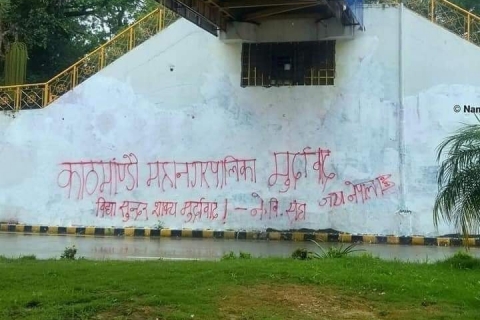 काठमाण्डौ महानगरपालिका मुर्दावाद
विद्या सुन्दर शाक्य मुर्दावाद ! - ने.वि. संघ जय नेपाल
© Nam